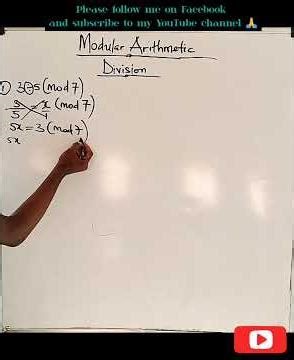 Please follow me on Facebook
and subscribe to my YouTube channel 🙏
Modular Arithmetic
Division
① 3÷5(mod 7)
3/5 = x/1 (mod 7)
5x = 3(mod 7)
5x